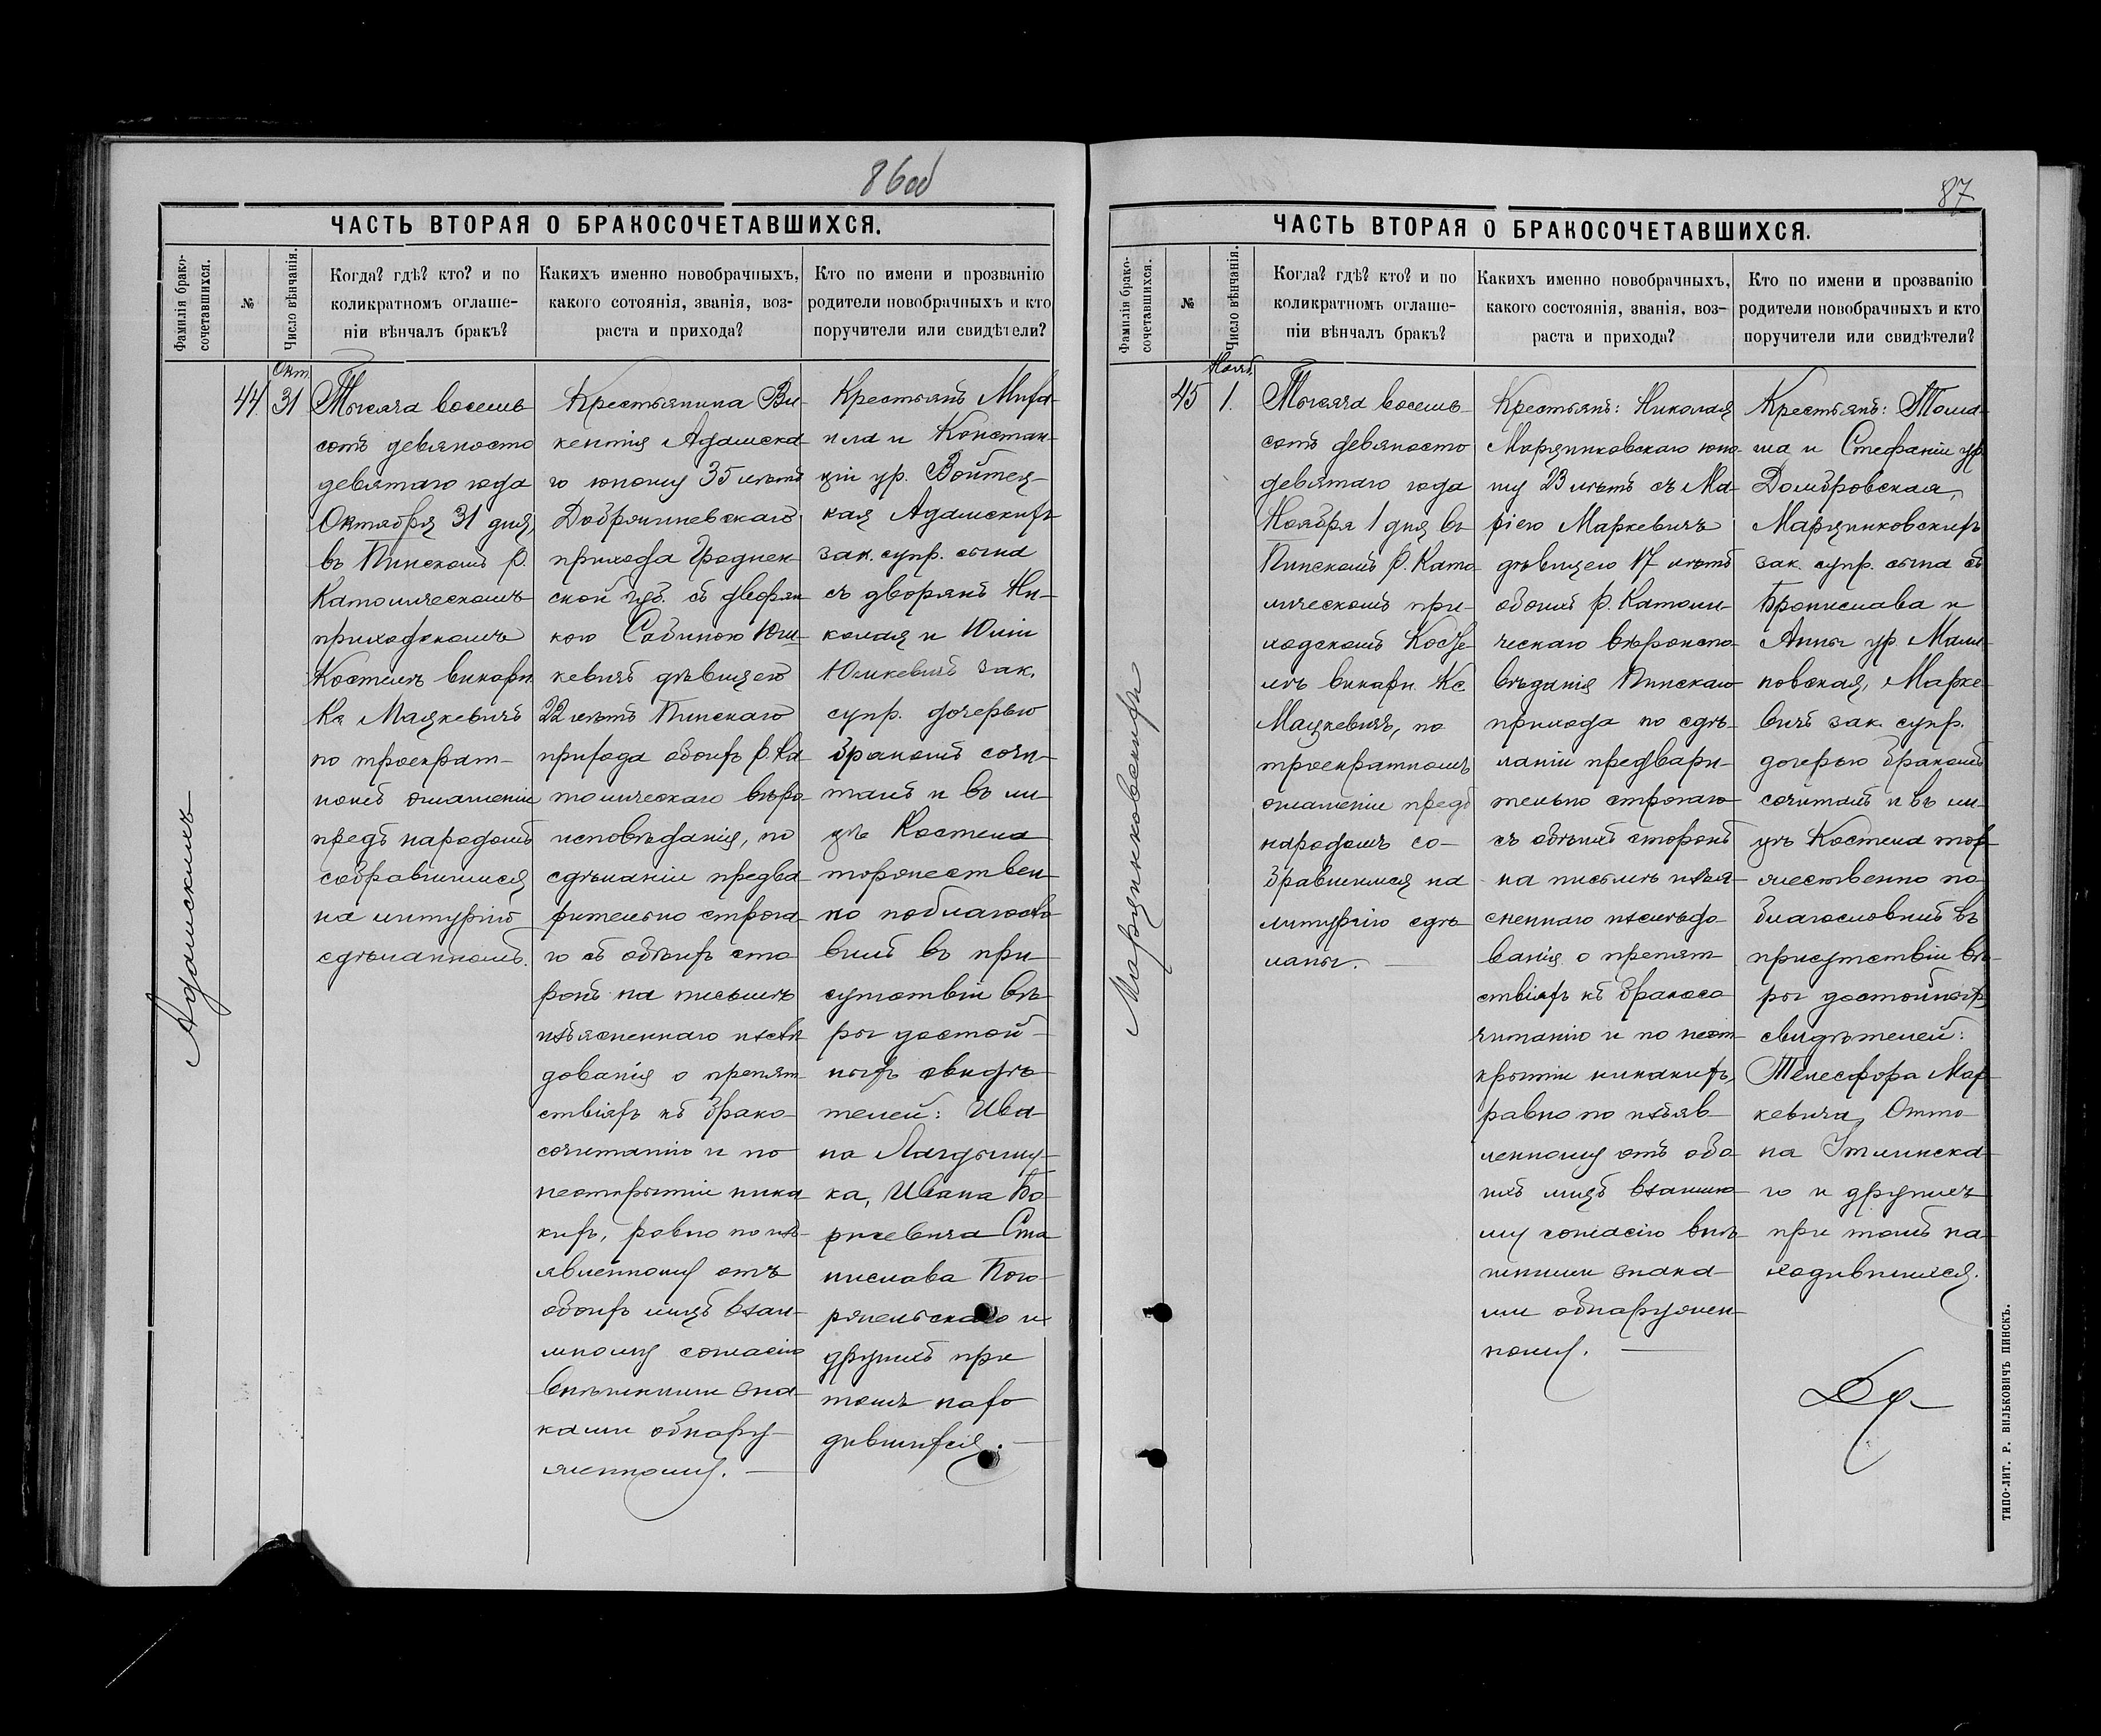 86об
ЧАСТЬ ВТОРАЯ О БРАКОСОЧЕТАВШИХСЯ.
Фамилія брако-
сочетавшихся.
№
Число вѣнчанія.
Когда? гдѣ? кто? и по
коликратномъ оглаше-
ніи вѣнчалъ бракъ?
Какихъ именно новобрачныхъ,
какого сотоянія, званія, воз-
раста и прихода?
Кто по имени и прозванію
родители новобрачныхъ и кто
поручители или свидѣтели?
Адамскихъ
44.
Окт.
31
Тысяча восемь
сотъ девяносто
девятаго года
Октября 31 дня,
въ Пинскомъ Р.
Католическомъ
приходскомъ
Костелѣ викарн.
Кс Мацкевичъ
по троекрат-
номъ оглашеніи
предъ народомъ
собравшимся
на литургію
сдѣланномъ.
Крестьянина Ви-
кентія Адамска-
го юношу 35 лѣтъ
прихода Гроднен-
ской губ. съ дворян-
кою Сабиною Юш-
кевичъ дѣвицею
22 лѣтъ Пинскаго
прихода обоихъ р. Ка-
толическаго вѣро-
исповѣданія, по
сдѣланіи предва-
рительно строга-
го съ обѣихъ сто-
ронъ на письмѣ
изъясненнаго изслѣ-
дованія о препят-
ствіяхъ къ брако-
сочитанію и по
неоткрытіи ника-
кихъ, равно по изъ-
явленному отъ
обоихъ лицъ взаи-
мному согласію
внѣшними зна-
ками обнару-
женному.
Крестьянъ Миха-
ила и Констан-
ціи ур. Войтец-
кая Адамскихъ
зак. супр. сына
съ дворянъ Ни-
колая и Юліи
Юшкевичъ зак.
супр. дочерью
бракомъ сочи-
талъ и въ ли-
цѣ Костела
торжествен-
но поблагосло-
вилъ въ при-
сутствіи вѣ-
ры достой-
ныхъ свидѣ-
телей: Ива-
на
ка, Ивана Бо-
рисевича Ста-
нислава Пого-
ржельскаго и
другихъ при
томъ нахо-
дившихся.
87
ЧАСТЬ ВТОРАЯ О БРАКОСОЧЕТАВШИХСЯ.
Фамилія брако-
сочетавшихся.
№
Число вѣнчанія.
Когда? гдѣ? кто? и по
коликратномъ оглаше-
ніи вѣнчалъ бракъ?
Какихъ именно новобрачныхъ,
какого состоянія, званія, воз-
раста и прихода?
Кто по имени и прозванію
родители новобрачныхъ и кто
поручители или свидѣтели?
Марцинковскихъ
45
Нояб.
1.
Тысяча восемь-
сотъ девяносто
девятаго года
Ноября 1 дня въ
Пинскомъ Р. Като-
лическомъ при-
ходскомъ Косте-
лѣ викарн. Кс.
Мацкевичъ, по
троекратномъ
оглашеніи предъ
народомъ со-
бравшимся на
литургію сдѣ-
ланы.
Крестьянъ: Николая
Марцинковскаго юно-
шу 23 лѣтъ съ Ма-
ріею Маркевичъ
дѣвицею 17 лѣтъ
обоихъ р. Католи-
ческаго вѣроиспо-
вѣданія Пинскаго
прихода по сдѣ-
ланіи предвари-
тельно строгаго
съ обѣихъ сторонъ
на письмѣ изъя-
сненнаго изслѣдо-
ванія о препят-
ствіяхъ къ бракосо-
читанію и по неот-
крытіи никакихъ,
равно по изъяв-
ленному отъ обо-
ихъ лицъ взаимно-
му согласію внѣ-
шними знака-
ми обнаружен-
ному.
Крестьянъ: Тома-
ша и Стефаніи ур.
Домбровская,
Марцинковскихъ
зак. супр. сына съ
Бронислава и
Анны ур. Мали-
новская, Марке-
вичъ зак. супр.
дочерью бракомъ
сочиталъ и въ ли-
цѣ Костела тор-
жественно по-
благословилъ въ
присутствіи вѣ-
ры достойныхъ
свидѣтелей:
Телесфора Мар-
кевича, Отто-
на
го и другихъ
при томъ на-
ходившихся.
ТИПО-ЛИТ. Р. ВИЛЬКОВИЧЪ ПИНСКЪ.